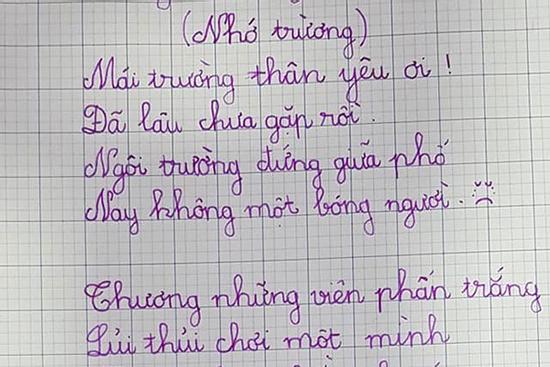 (Nhớ trường)
Mái trường thân yêu ơi !
Đã lâu chưa gặp rồi .
Ngôi trường đứng giữa phố
Nay không một bóng người .
Thương những viên phấn trắng
Lủi thủi chơi một mình